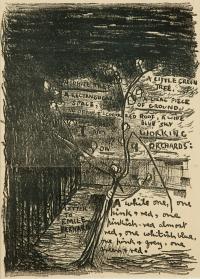 A LITTLE GREEN
TREE.
A RECTANGULAR
PIECE
OF GROUND.
RED ROOF, A WIDE
BLUE SKY
WORKING
ON
ORCHARDS:
EMILE
BERNARD
A white one, one
pink & red, one
pinkish-red almost
red, one whitish blue,
one pink & grey, one
green & red.